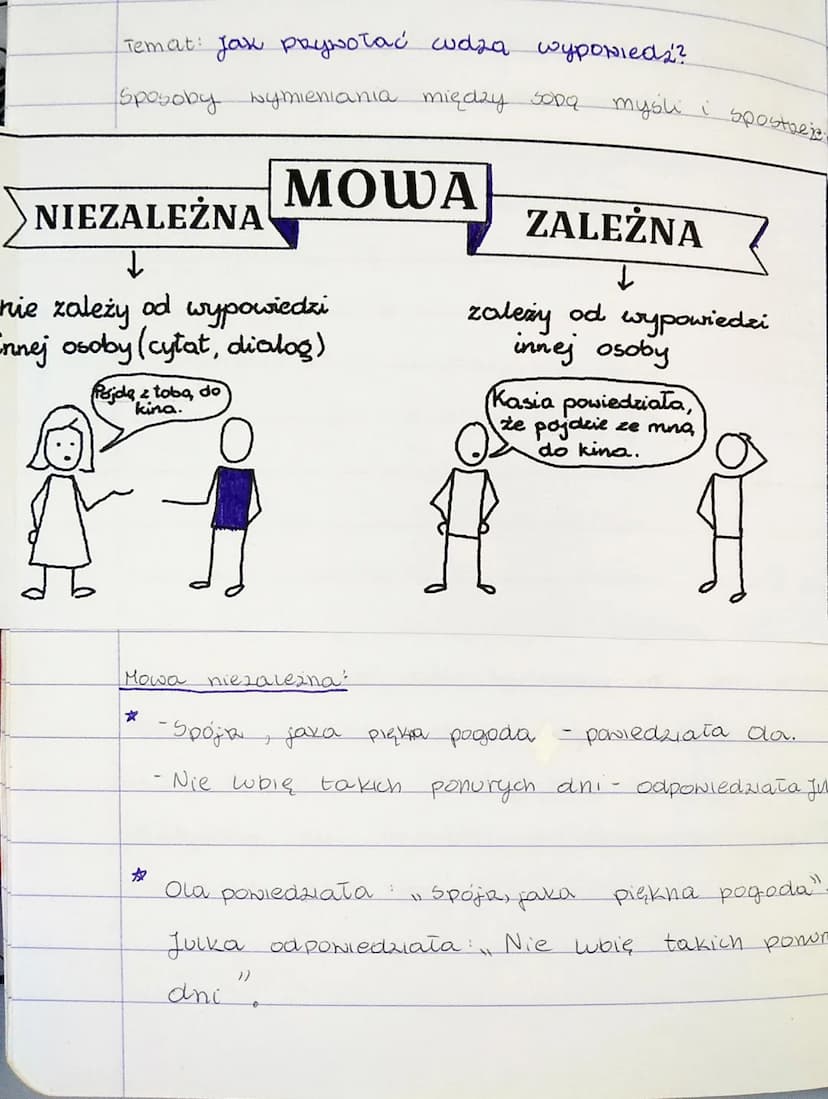 Temat: Jak przywołać cudzą wypowiedź?
Sposoby wymieniania między sobą myśli i
MOWA
NIEZALEŻNA
ZALEŻNA
nie zależy od wypowiedzi
innej osoby (cytat, dialog)
zależy od wypowiedzi
innej osoby
Pójdę z tobą do
kina.
Kasia powiedziała,
że pójdzie ze mną
do kina.
Mowa niezależna:
* - Spójrz, jaka piękna pogoda - powiedziała Ola.
- Nie lubię takich ponurych dni - odpowiedziała
* Ola powiedziała: „Spójrz, jaka piękna pogoda".
Julka odpowiedziała: „Nie lubię takich
dni".